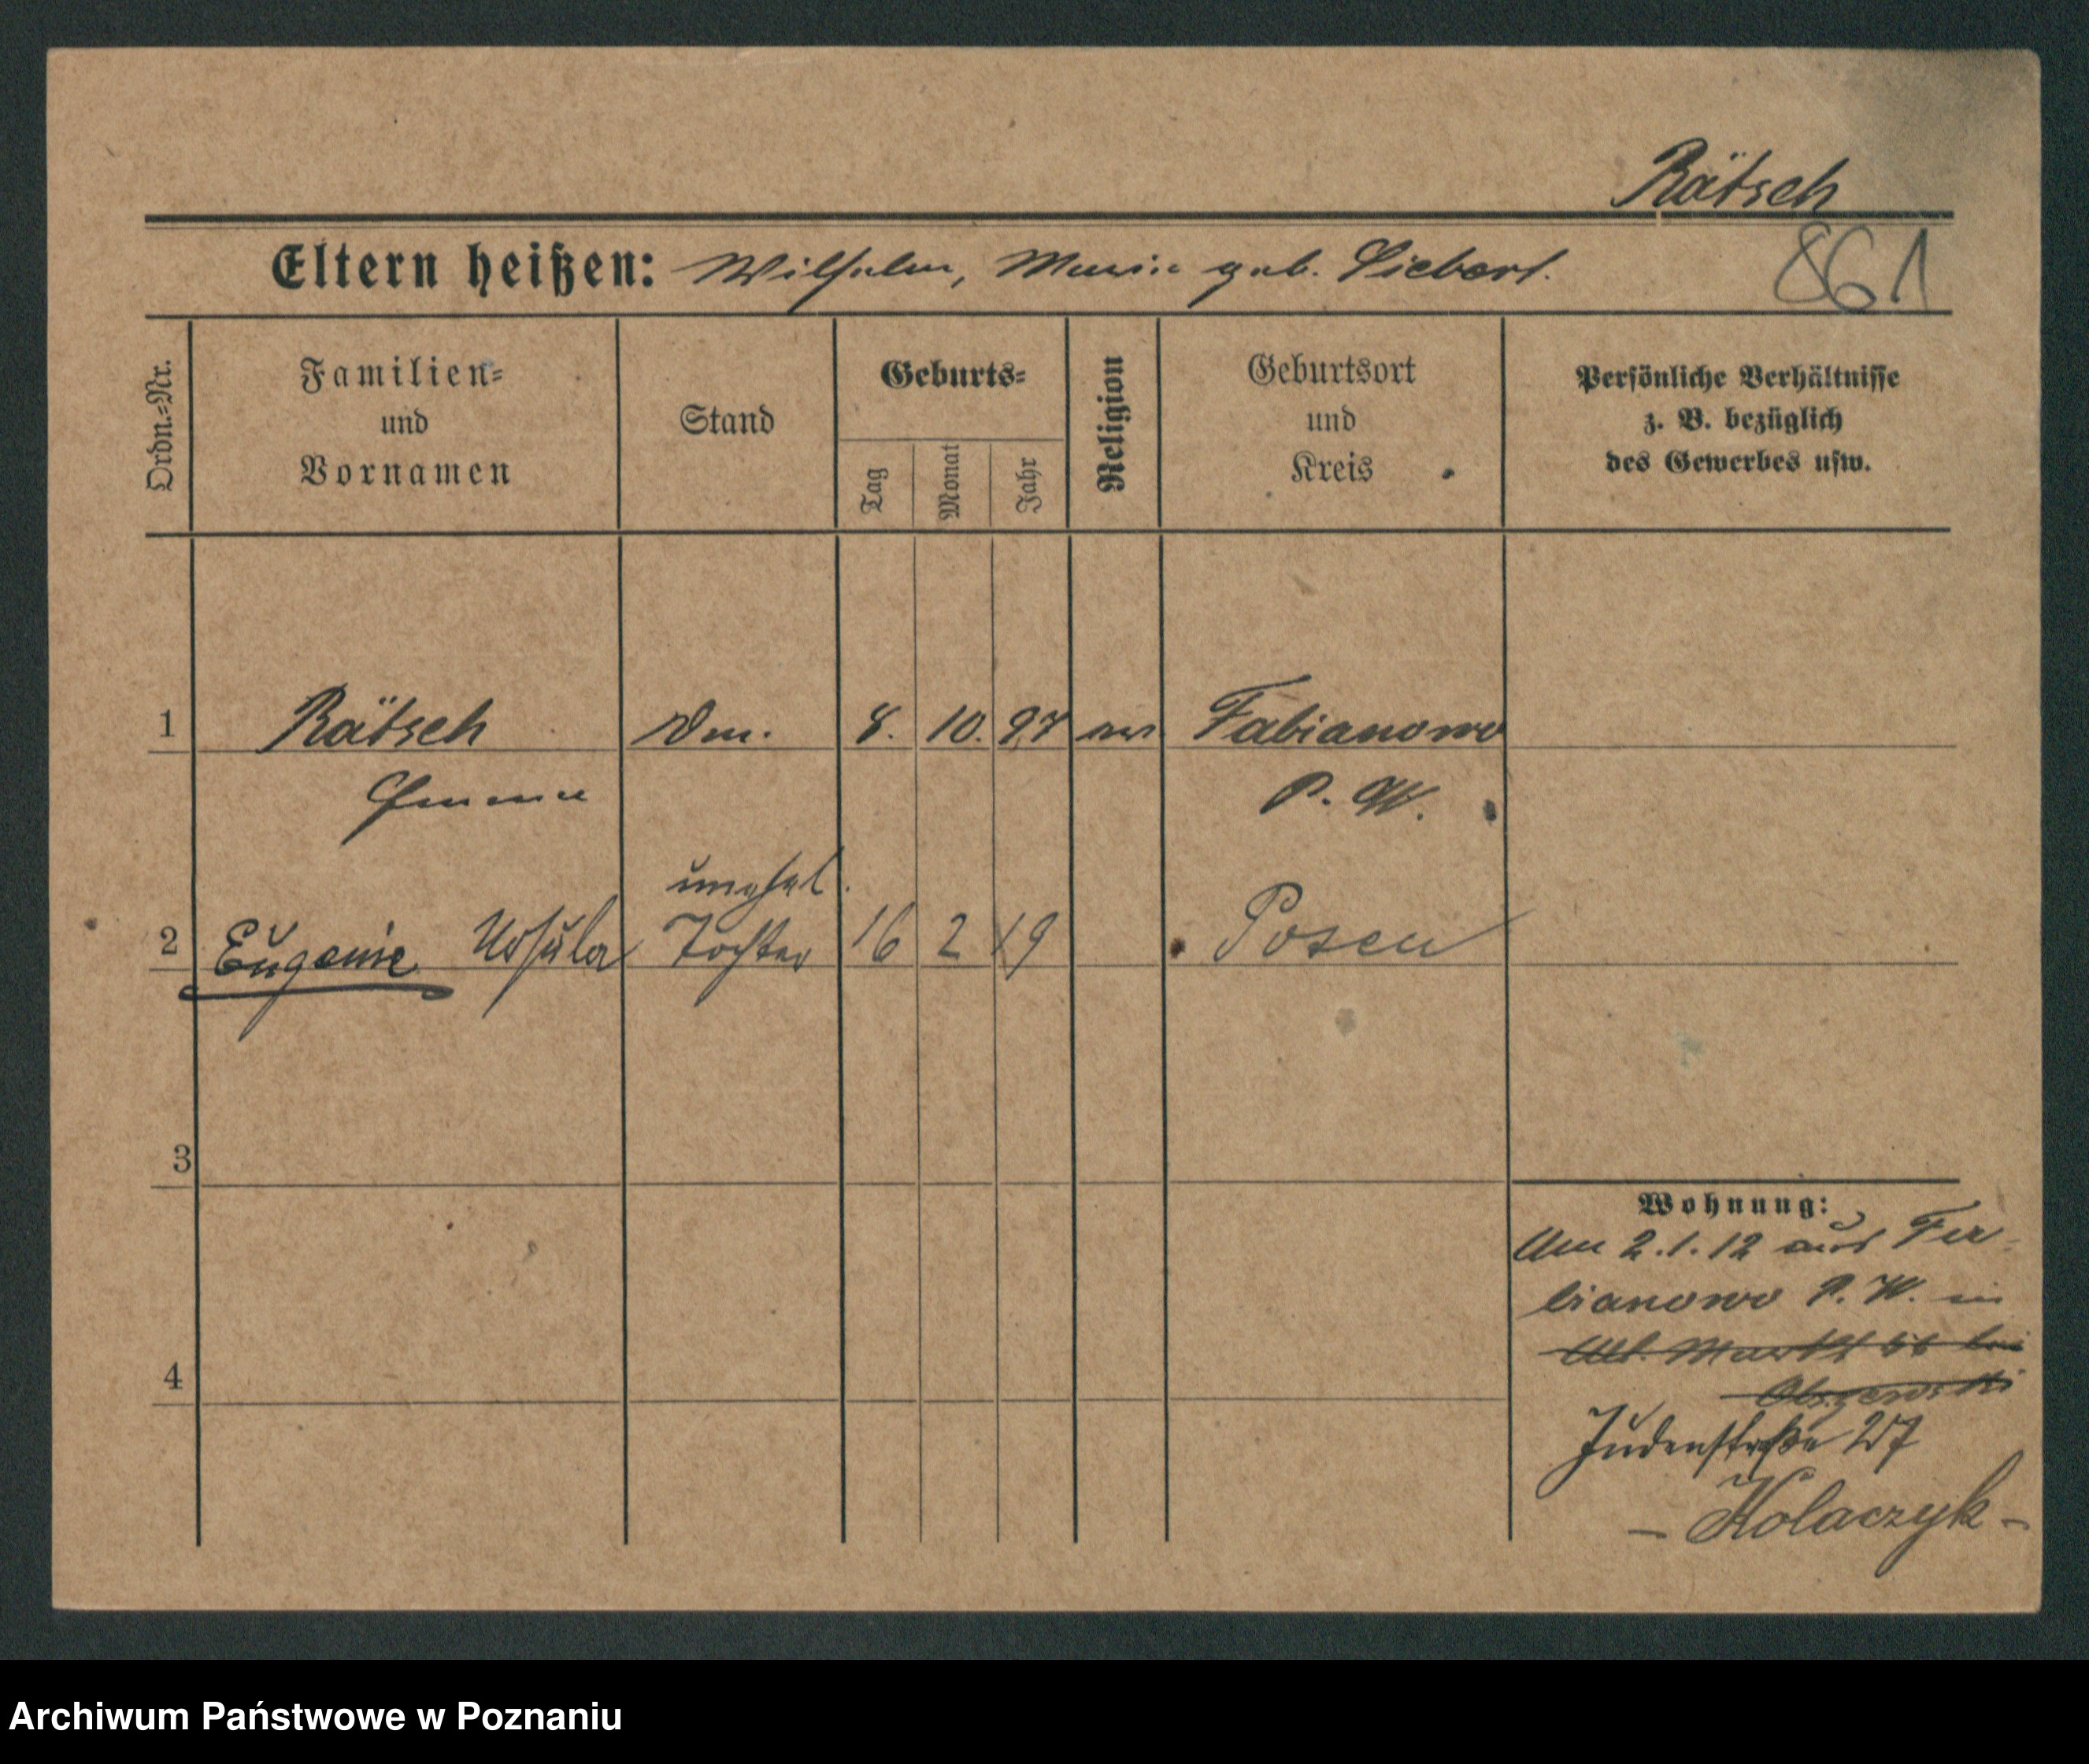 Rätsch
Eltern heißen: Wilhelm, Marie geb. Siebert.
861
Ordn.-Nr.
Familien-
und
Vornamen
Stand
Geburts-
Tag
Monat
Jahr
Religion
Geburtsort
und
Kreis
Persönliche Verhältnisse
z. B. bezüglich
des Gewerbes usw.
1 Rätsch 8. 10. 97 ev. Fabianowo
Emma P. W.
unehel.
2 Eugenie Ursula Tochter 16 2 19 Posen
3
4
Wohnung:
Am 2.1.12 aus Fa-
bianowo P. W. in
Alt. Markt bei
Judenstraße 27
- Kolaczyk -
Archiwum Państwowe w Poznaniu